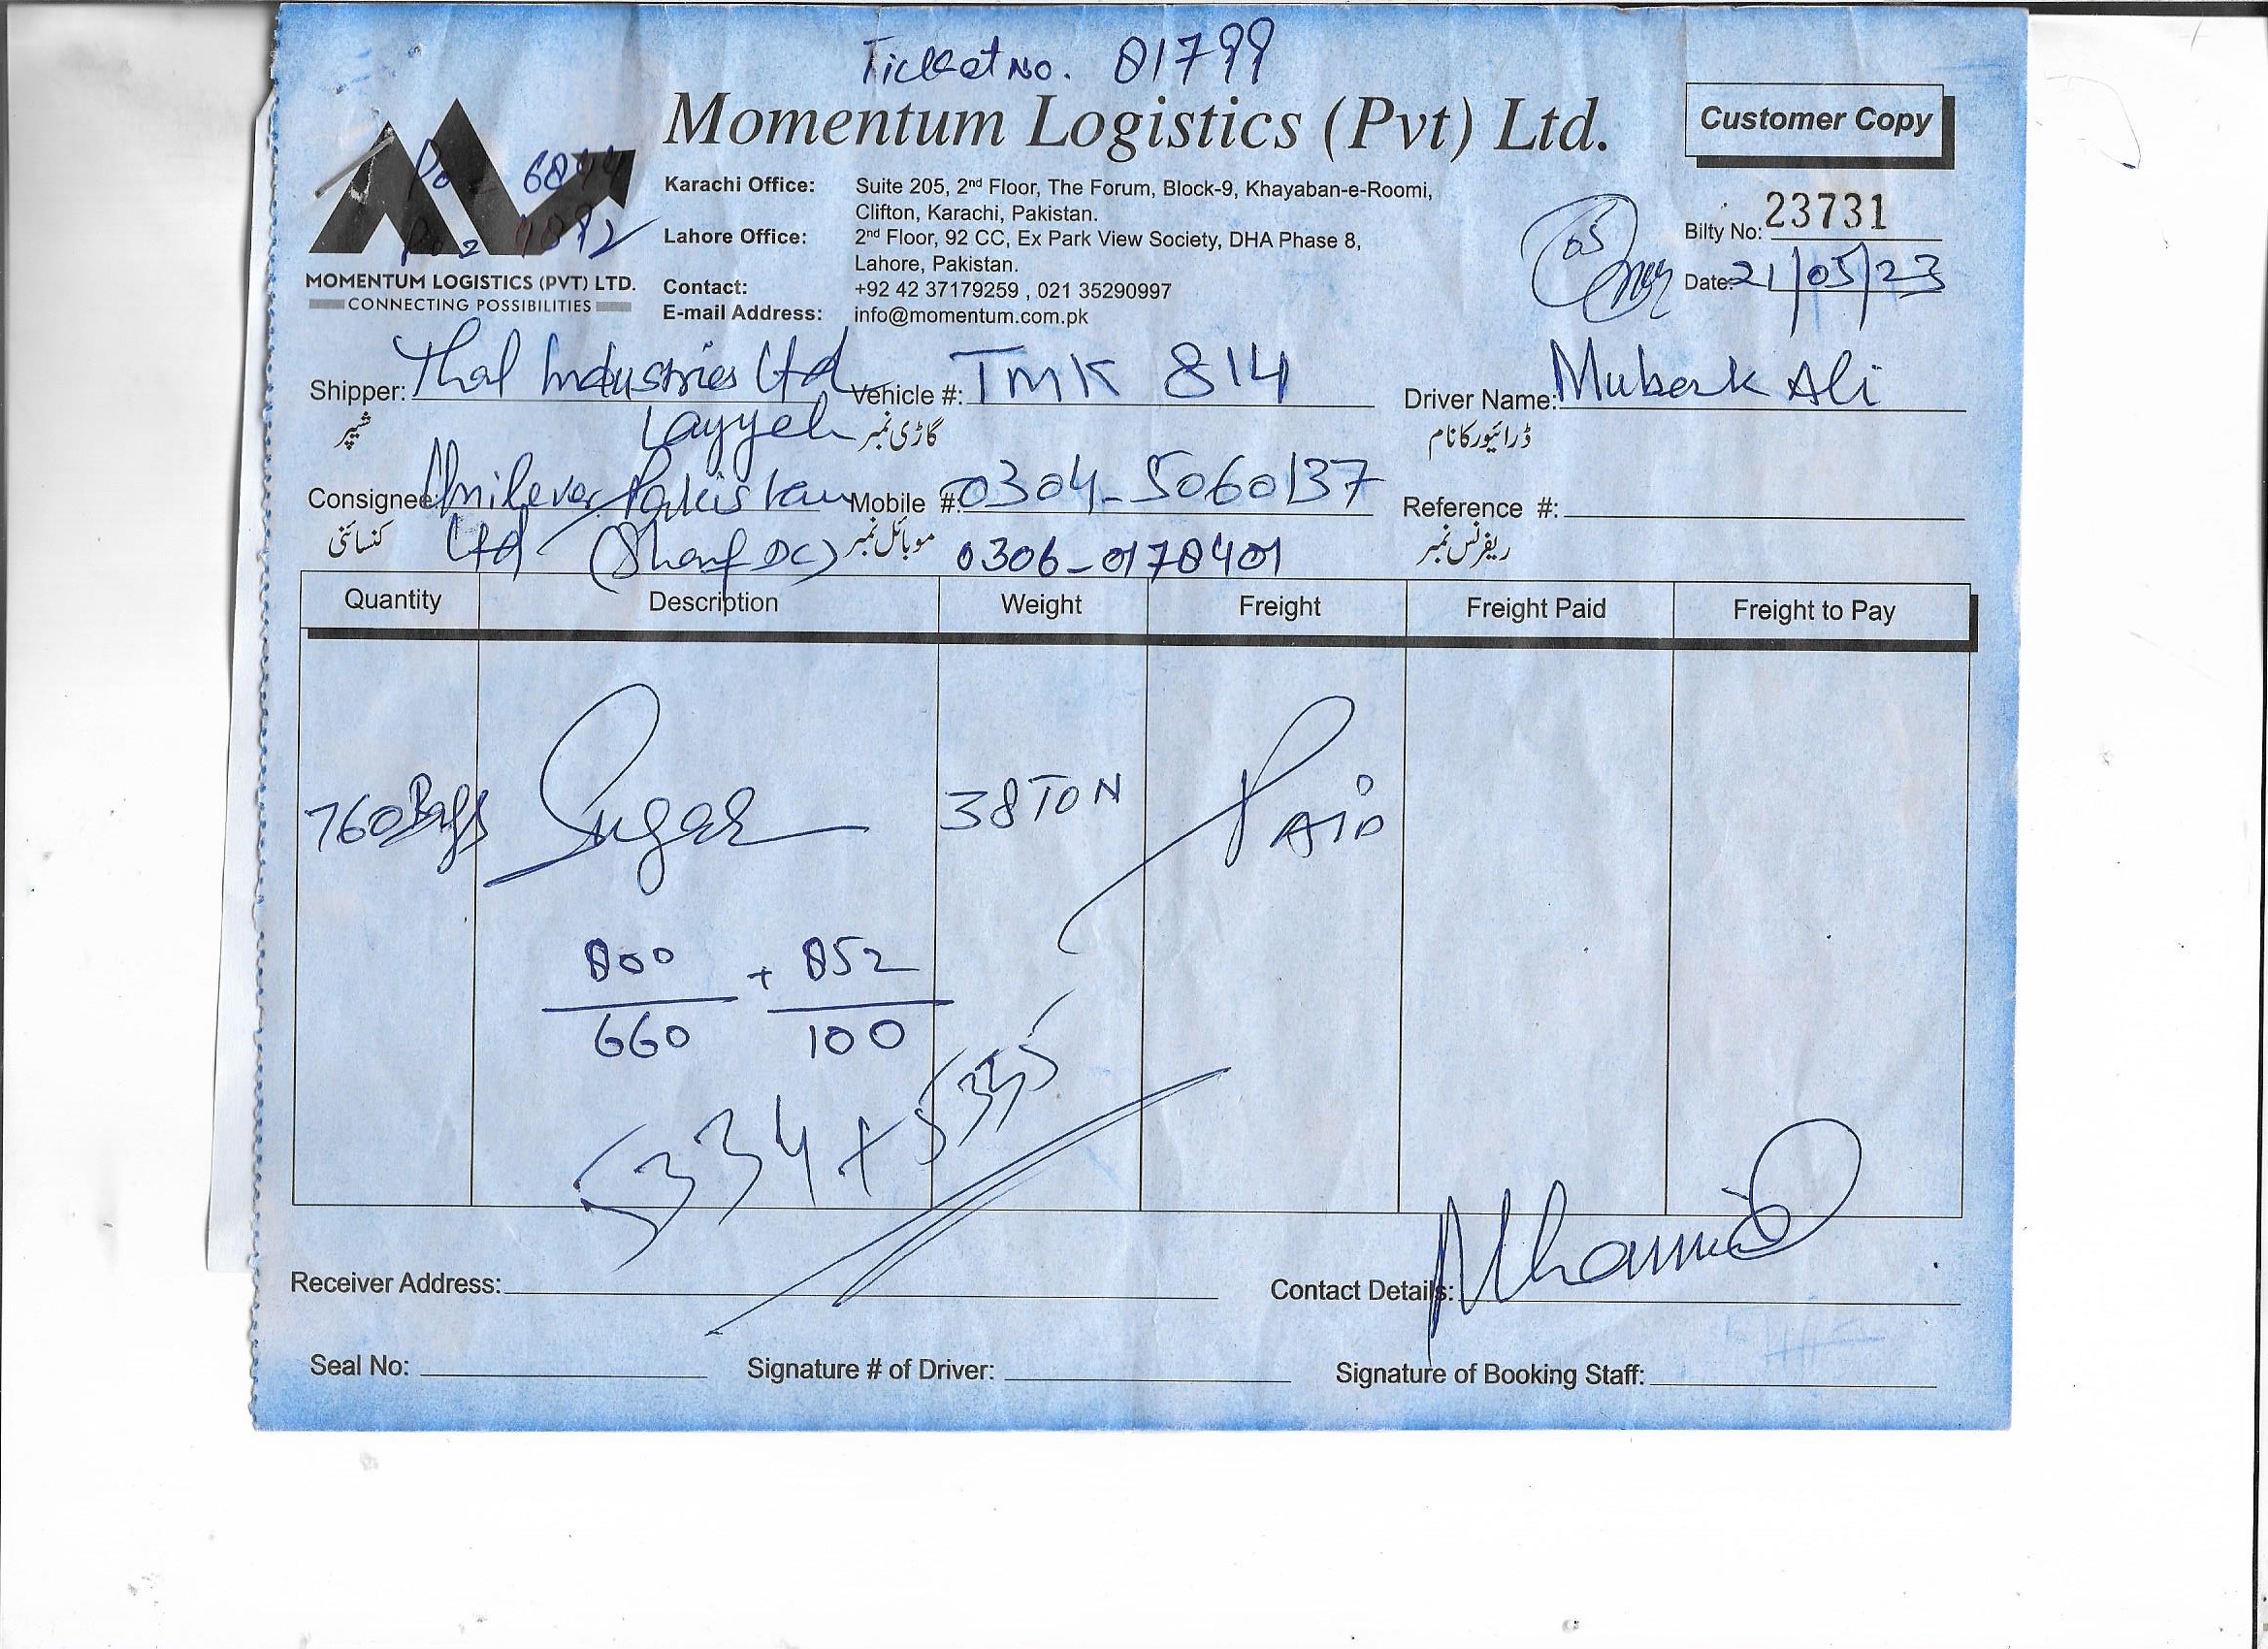 Ticket No. 01799
Momentum Logistics (Pvt) Ltd.
Customer Copy
MOMENTUM LOGISTICS (PVT) LTD.
CONNECTING POSSIBILITIES
Karachi Office: Suite 205, 2nd Floor, The Forum, Block-9, Khayaban-e-Roomi,
Clifton, Karachi, Pakistan.
Lahore Office: 2nd Floor, 92 CC, Ex Park View Society, DHA Phase 8,
Lahore, Pakistan.
Contact: +92 42 37179259 , 021 35290997
E-mail Address: info@momentum.com.pk
Bilty No: 23731
Date: 21/05/23
Shipper: Thal Industries Ltd Vehicle #: TMK 814 Driver Name: Mubark Ali
شپر Layyeh گاڑی نمبر ڈرائیور کا نام
Consignee: Unilever Pakistan Mobile #: 0304-5060137 Reference #:
کنسائنی Ltd (Sharif DC) موبائل نمبر 0306-0178401 ریفرنس نمبر
Quantity Description Weight Freight Freight Paid Freight to Pay
760 Bags Sugar 38 TON PAID
800 + 852
660 100
5334 + 5335
Receiver Address: Contact Details:
Seal No: Signature # of Driver: Signature of Booking Staff: